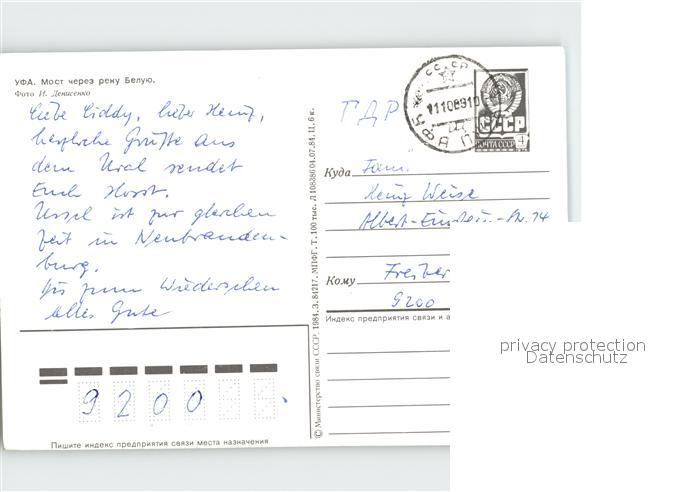 УФА. Мост через реку Белую.
Фото И. Денисенко
Liebe Ciddy, lieber Heinz,
herzliche Grüße aus
dem Ural sendet
Euch Horst.
Ursel ist zur gleichen
Zeit in Neubranden-
burg.
Bis zum Wiedersehen
Alles Gute
9200
Пишите индекс предприятия связи места назначения
© Министерство связи СССР. 1984. З. 84217. МПФГ. Т. 100 тыс. Л 108386 04.07.84. 11. 6 к.
ГДР
СССР
УФА
11108910
СССР
ПОЧТА СССР 4
Куда Fam.
Heinz Weise
Albert-Einstein-Str. 14
Кому Freiber
9200
Индекс предприятия связи и а
privacy protection
Datenschutz